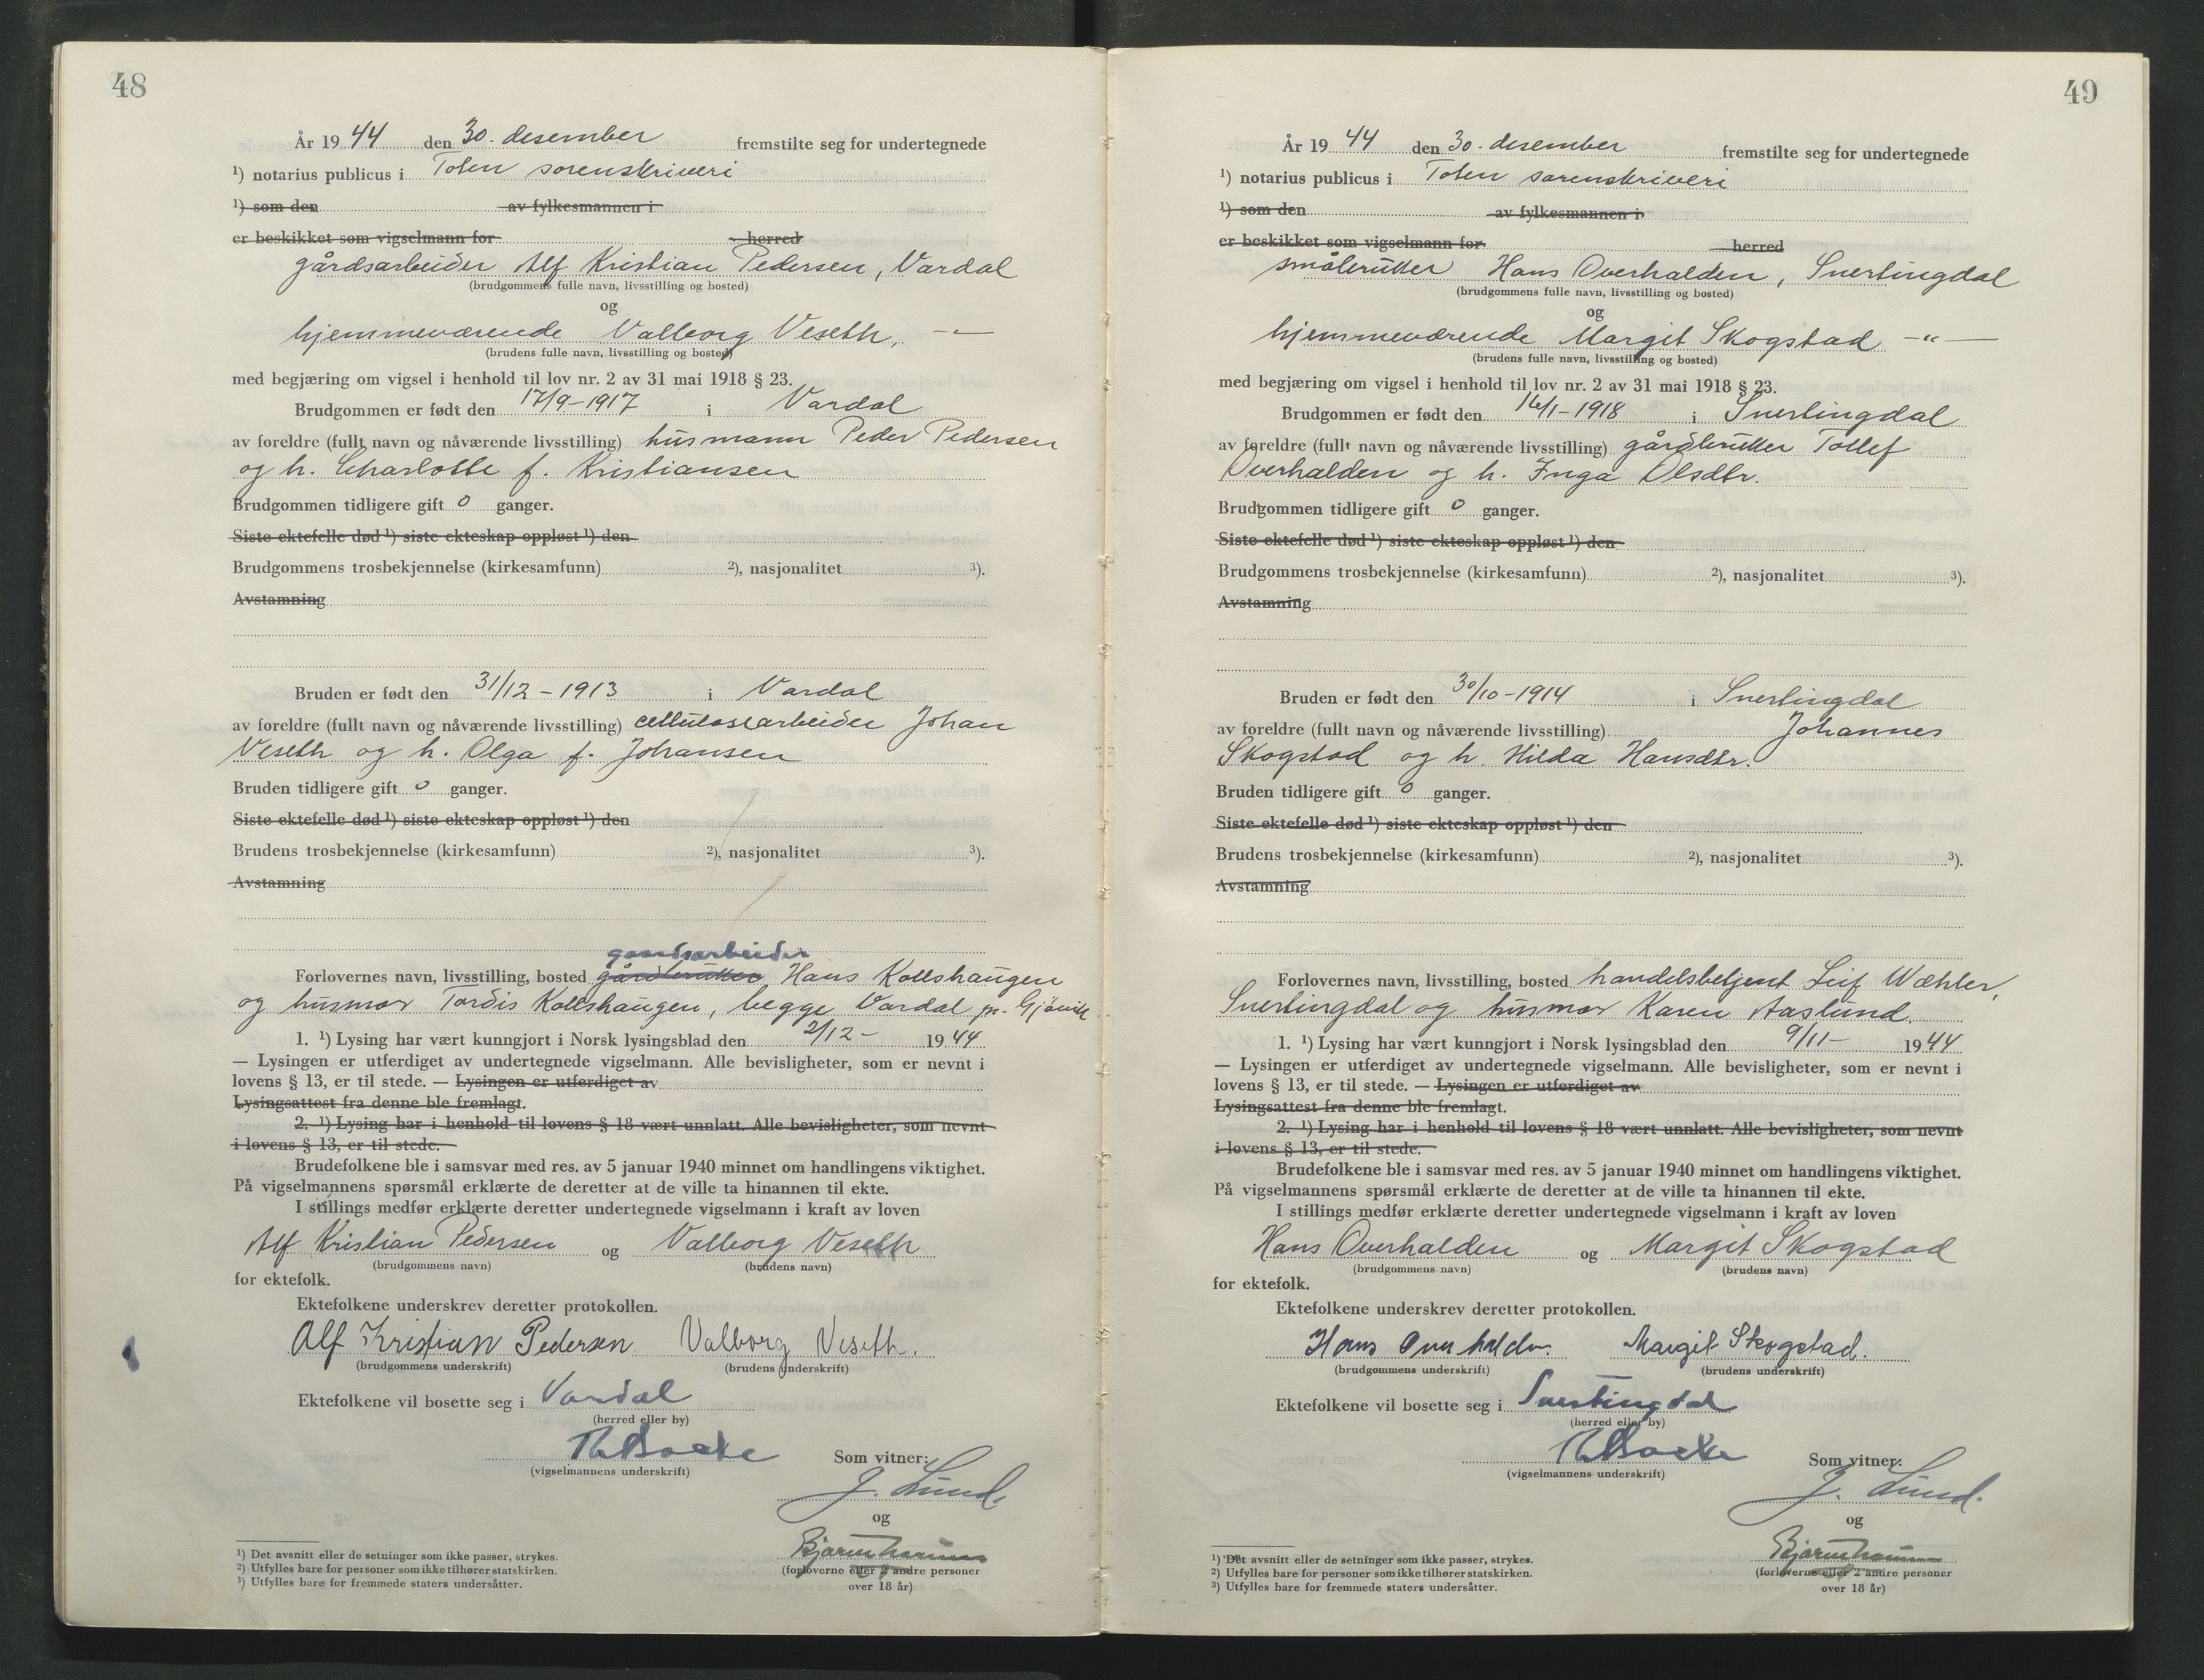 48
År 1944 den 30. desember fremstilte seg for undertegnede
¹) notarius publicus i Toten sorenskriveri
¹) som den av fylkesmannen i
er beskikket som vigselmann for herred
gårdsarbeider Alf Kristian Pedersen, Vardal
(brudgommens fulle navn, livsstilling og bosted)
og
hjemmeværende Valborg Veseth, —"—
(brudens fulle navn, livsstilling og bosted)
med begjæring om vigsel i henhold til lov nr. 2 av 31 mai 1918 § 23.
Brudgommen er født den 17/9-1917 i Vardal
av foreldre (fullt navn og nåværende livsstilling) husmann Peder Pedersen
og h. Charlotte f. Kristiansen
Brudgommen tidligere gift 0 ganger.
Siste ektefelle død ¹) siste ekteskap oppløst ¹) den
Brudgommens trosbekjennelse (kirkesamfunn) ²), nasjonalitet ³).
Avstamning
Bruden er født den 31/12-1913 i Vardal
av foreldre (fullt navn og nåværende livsstilling) cellulosearbeider Johan
Veseth og h. Olga f. Johansen
Bruden tidligere gift 0 ganger.
Siste ektefelle død ¹) siste ekteskap oppløst ¹) den
Brudens trosbekjennelse (kirkesamfunn) ²), nasjonalitet ³).
Avstamning
gaardsarbeider
Forlovernes navn, livsstilling, bosted gårdbruker Hans Kollshaugen
og husmor Tordis Kollshaugen, begge Vardal pr. Gjøvik
1. ¹) Lysing har vært kunngjort i Norsk lysingsblad den 2/12- 1944
— Lysingen er utferdiget av undertegnede vigselmann. Alle bevisligheter, som er nevnt i
lovens § 13, er til stede. — Lysingen er utferdiget av
Lysingsattest fra denne ble fremlagt.
2. ¹) Lysing har i henhold til lovens § 18 vært unnlatt. Alle bevisligheter, som nevnt
i lovens § 13, er til stede.
Brudefolkene ble i samsvar med res. av 5 januar 1940 minnet om handlingens viktighet.
På vigselmannens spørsmål erklærte de deretter at de ville ta hinannen til ekte.
I stillings medfør erklærte deretter undertegnede vigselmann i kraft av loven
Alf Kristian Pedersen og Valborg Veseth
(brudgommens navn) (brudens navn)
for ektefolk.
Ektefolkene underskrev deretter protokollen.
Alf Kristian Pedersen. Valborg Veseth.
(brudgommens underskrift) (brudens underskrift)
Ektefolkene vil bosette seg i Vardal
(herred eller by)
Som vitner:
(vigselmannens underskrift)
J. Lund.
og
Bjarne
(forloverne eller 2 andre personer
over 18 år)
¹) Det avsnitt eller de setninger som ikke passer, strykes.
²) Utfylles bare for personer som ikke tilhører statskirken.
³) Utfylles bare for fremmede staters undersåtter.
49
År 1944 den 30. desember fremstilte seg for undertegnede
¹) notarius publicus i Toten sorenskriveri
¹) som den av fylkesmannen i
er beskikket som vigselmann for herred
småbruker Hans Overhalden, Snertingdal
(brudgommens fulle navn, livsstilling og bosted)
og
hjemmeværende Margit Skogstad —"—
(brudens fulle navn, livsstilling og bosted)
med begjæring om vigsel i henhold til lov nr. 2 av 31 mai 1918 § 23.
Brudgommen er født den 16/1-1918 i Snertingdal
av foreldre (fullt navn og nåværende livsstilling) gårdbruker Tollef
Overhalden og h. Inga Olsdtr.
Brudgommen tidligere gift 0 ganger.
Siste ektefelle død ¹) siste ekteskap oppløst ¹) den
Brudgommens trosbekjennelse (kirkesamfunn) ²), nasjonalitet ³).
Avstamning
Bruden er født den 30/10-1914 i Snertingdal
av foreldre (fullt navn og nåværende livsstilling) Johannes
Skogstad og h. Hilda Hansdtr.
Bruden tidligere gift 0 ganger.
Siste ektefelle død ¹) siste ekteskap oppløst ¹) den
Brudens trosbekjennelse (kirkesamfunn) ²), nasjonalitet ³).
Avstamning
Forlovernes navn, livsstilling, bosted handelsbetjent Leif Wæhler,
Snertingdal og husmor Karen Aaslund.
1. ¹) Lysing har vært kunngjort i Norsk lysingsblad den 9/11- 1944
— Lysingen er utferdiget av undertegnede vigselmann. Alle bevisligheter, som er nevnt i
lovens § 13, er til stede. — Lysingen er utferdiget av
Lysingsattest fra denne ble fremlagt.
2. ¹) Lysing har i henhold til lovens § 18 vært unnlatt. Alle bevisligheter, som nevnt
i lovens § 13, er til stede.
Brudefolkene ble i samsvar med res. av 5 januar 1940 minnet om handlingens viktighet.
På vigselmannens spørsmål erklærte de deretter at de ville ta hinannen til ekte.
I stillings medfør erklærte deretter undertegnede vigselmann i kraft av loven
Hans Overhalden og Margit Skogstad
(brudgommens navn) (brudens navn)
for ektefolk.
Ektefolkene underskrev deretter protokollen.
Hans Overhalden. Margit Skogstad.
(brudgommens underskrift) (brudens underskrift)
Ektefolkene vil bosette seg i Snertingdal
(herred eller by)
Som vitner:
(vigselmannens underskrift)
J. Lund.
og
Bjarne
(forloverne eller 2 andre personer
over 18 år)
¹) Det avsnitt eller de setninger som ikke passer, strykes.
²) Utfylles bare for personer som ikke tilhører statskirken.
³) Utfylles bare for fremmede staters undersåtter.